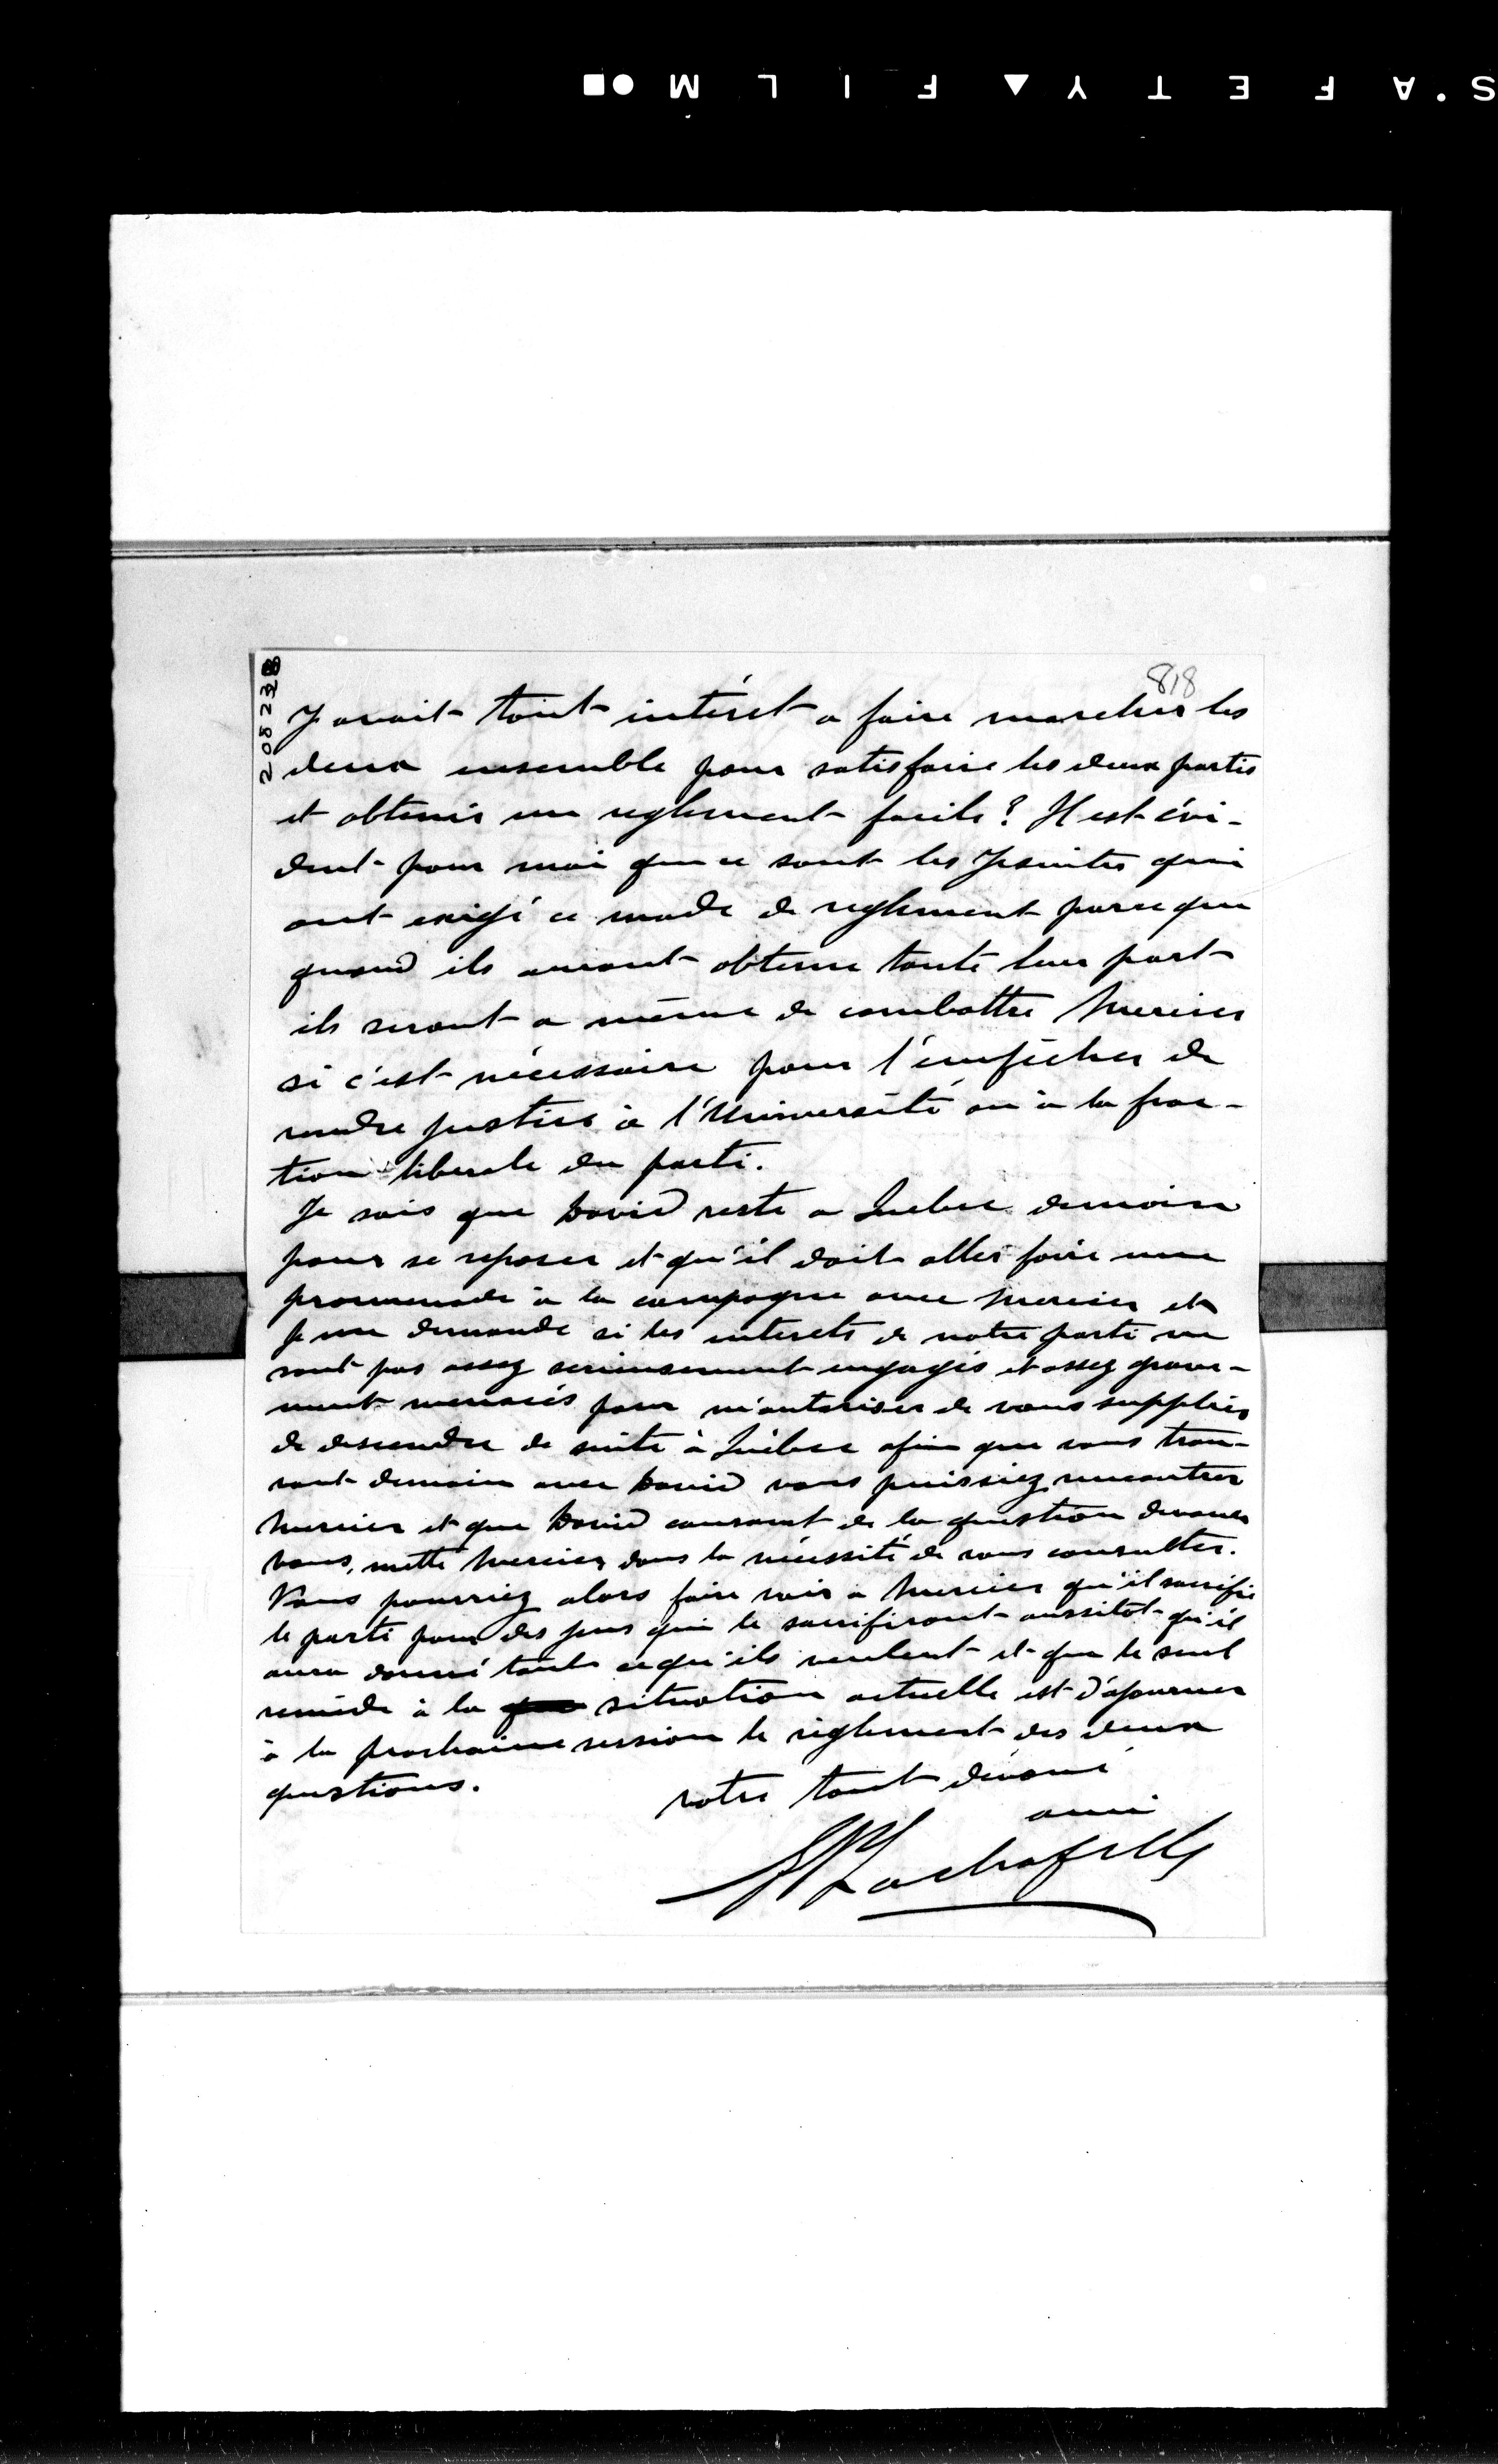 S'AFETY▲FILM●■
818
205238
Y avait tout intérêt a faire marcher les
deux ensemble pour satisfaire les deux partis
et obtenir un reglement facile? Il est évi-
dent pour moi que ce sont les Jesuites qui
ont exigé ce mode de reglement parce que
quand ils auront obtenu toute leur part
ils seront a même de combattre Mercier
si c'est nécessaire pour l'empêcher de
rendre justice à l'Université ou à la frac-
tion liberale du parti.
Je sais que David reste a Quebec demain
pour se reposer et qu'il doit aller faire une
promenade à la campagne avec Mercier et
je me demande si les interets de notre parti ne
sont pas assez serieusement engagés et assez grave-
ment menacés pour m'autoriser de vous supplier
de descendre de suite à Québec afin que vous trou-
vant demain avec David vous puissiez rencontrer
Mercier et que David causant de la question devant
vous, mette Mercier dans la nécessité de vous consulter.
Vous pourriez alors faire voir a Mercier qu'il sacrifie
le parti pour des gens qui le sacrifiront aussitot qu'il
aura donné tout ce qu'ils veulent et que le seul
remède à la situation actuelle est d'ajourner
à la prochaine session le règlement des deux
questions.
Votre tout dévoué
ami